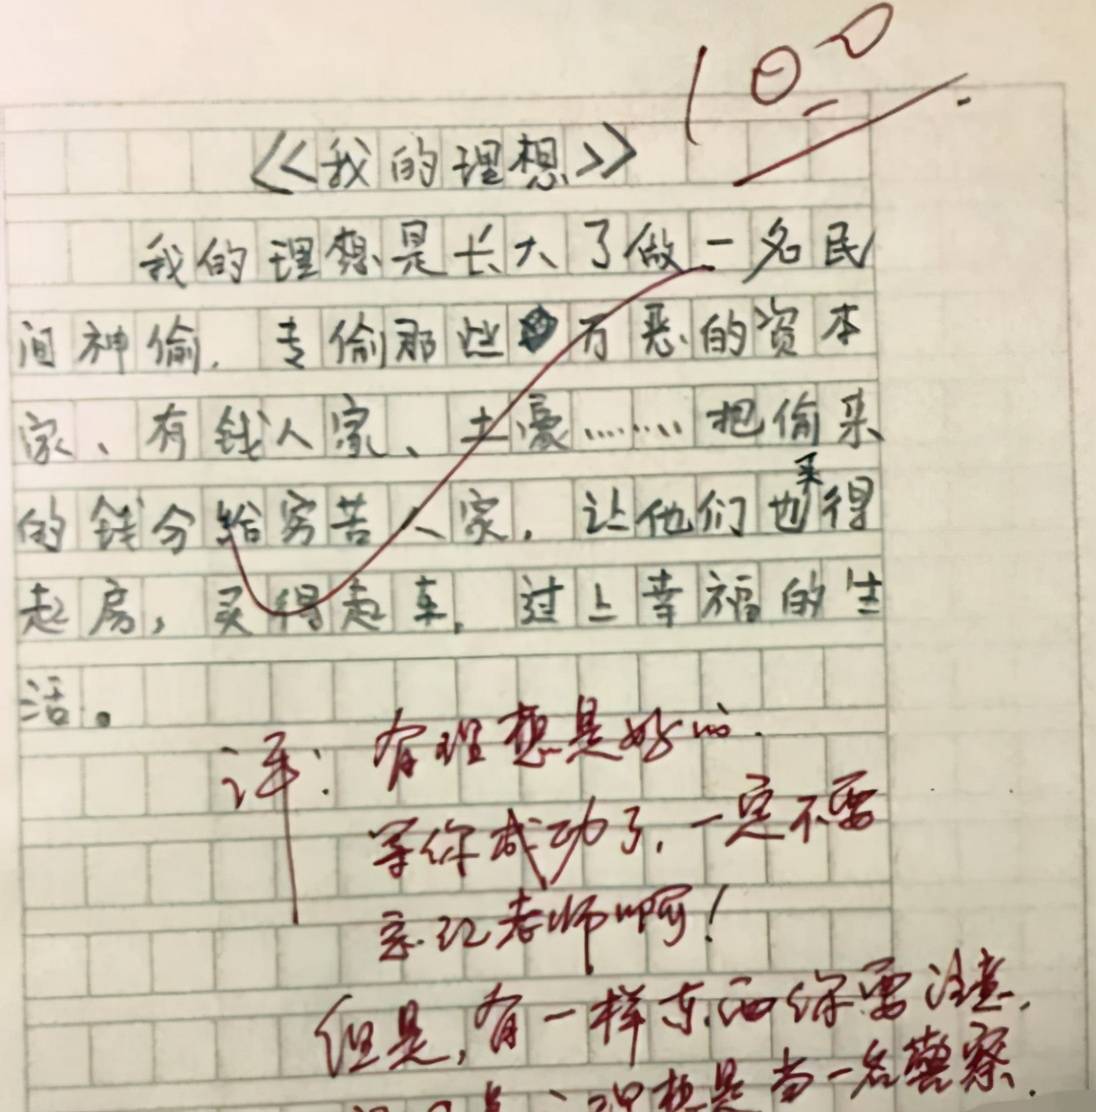 100
《我的理想》
我的理想是长大了做一名民
间神偷，专偷那些万恶的资本
家、有钱人家、土豪……把偷来
的钱分给穷苦人家，让他们也买得
起房，买得起车，过上幸福的生
活。
评：有理想是好的.
等你成功了，一定不要
忘记老师啊！
但是，有一样东西你要注意，
理想是当一名警察.